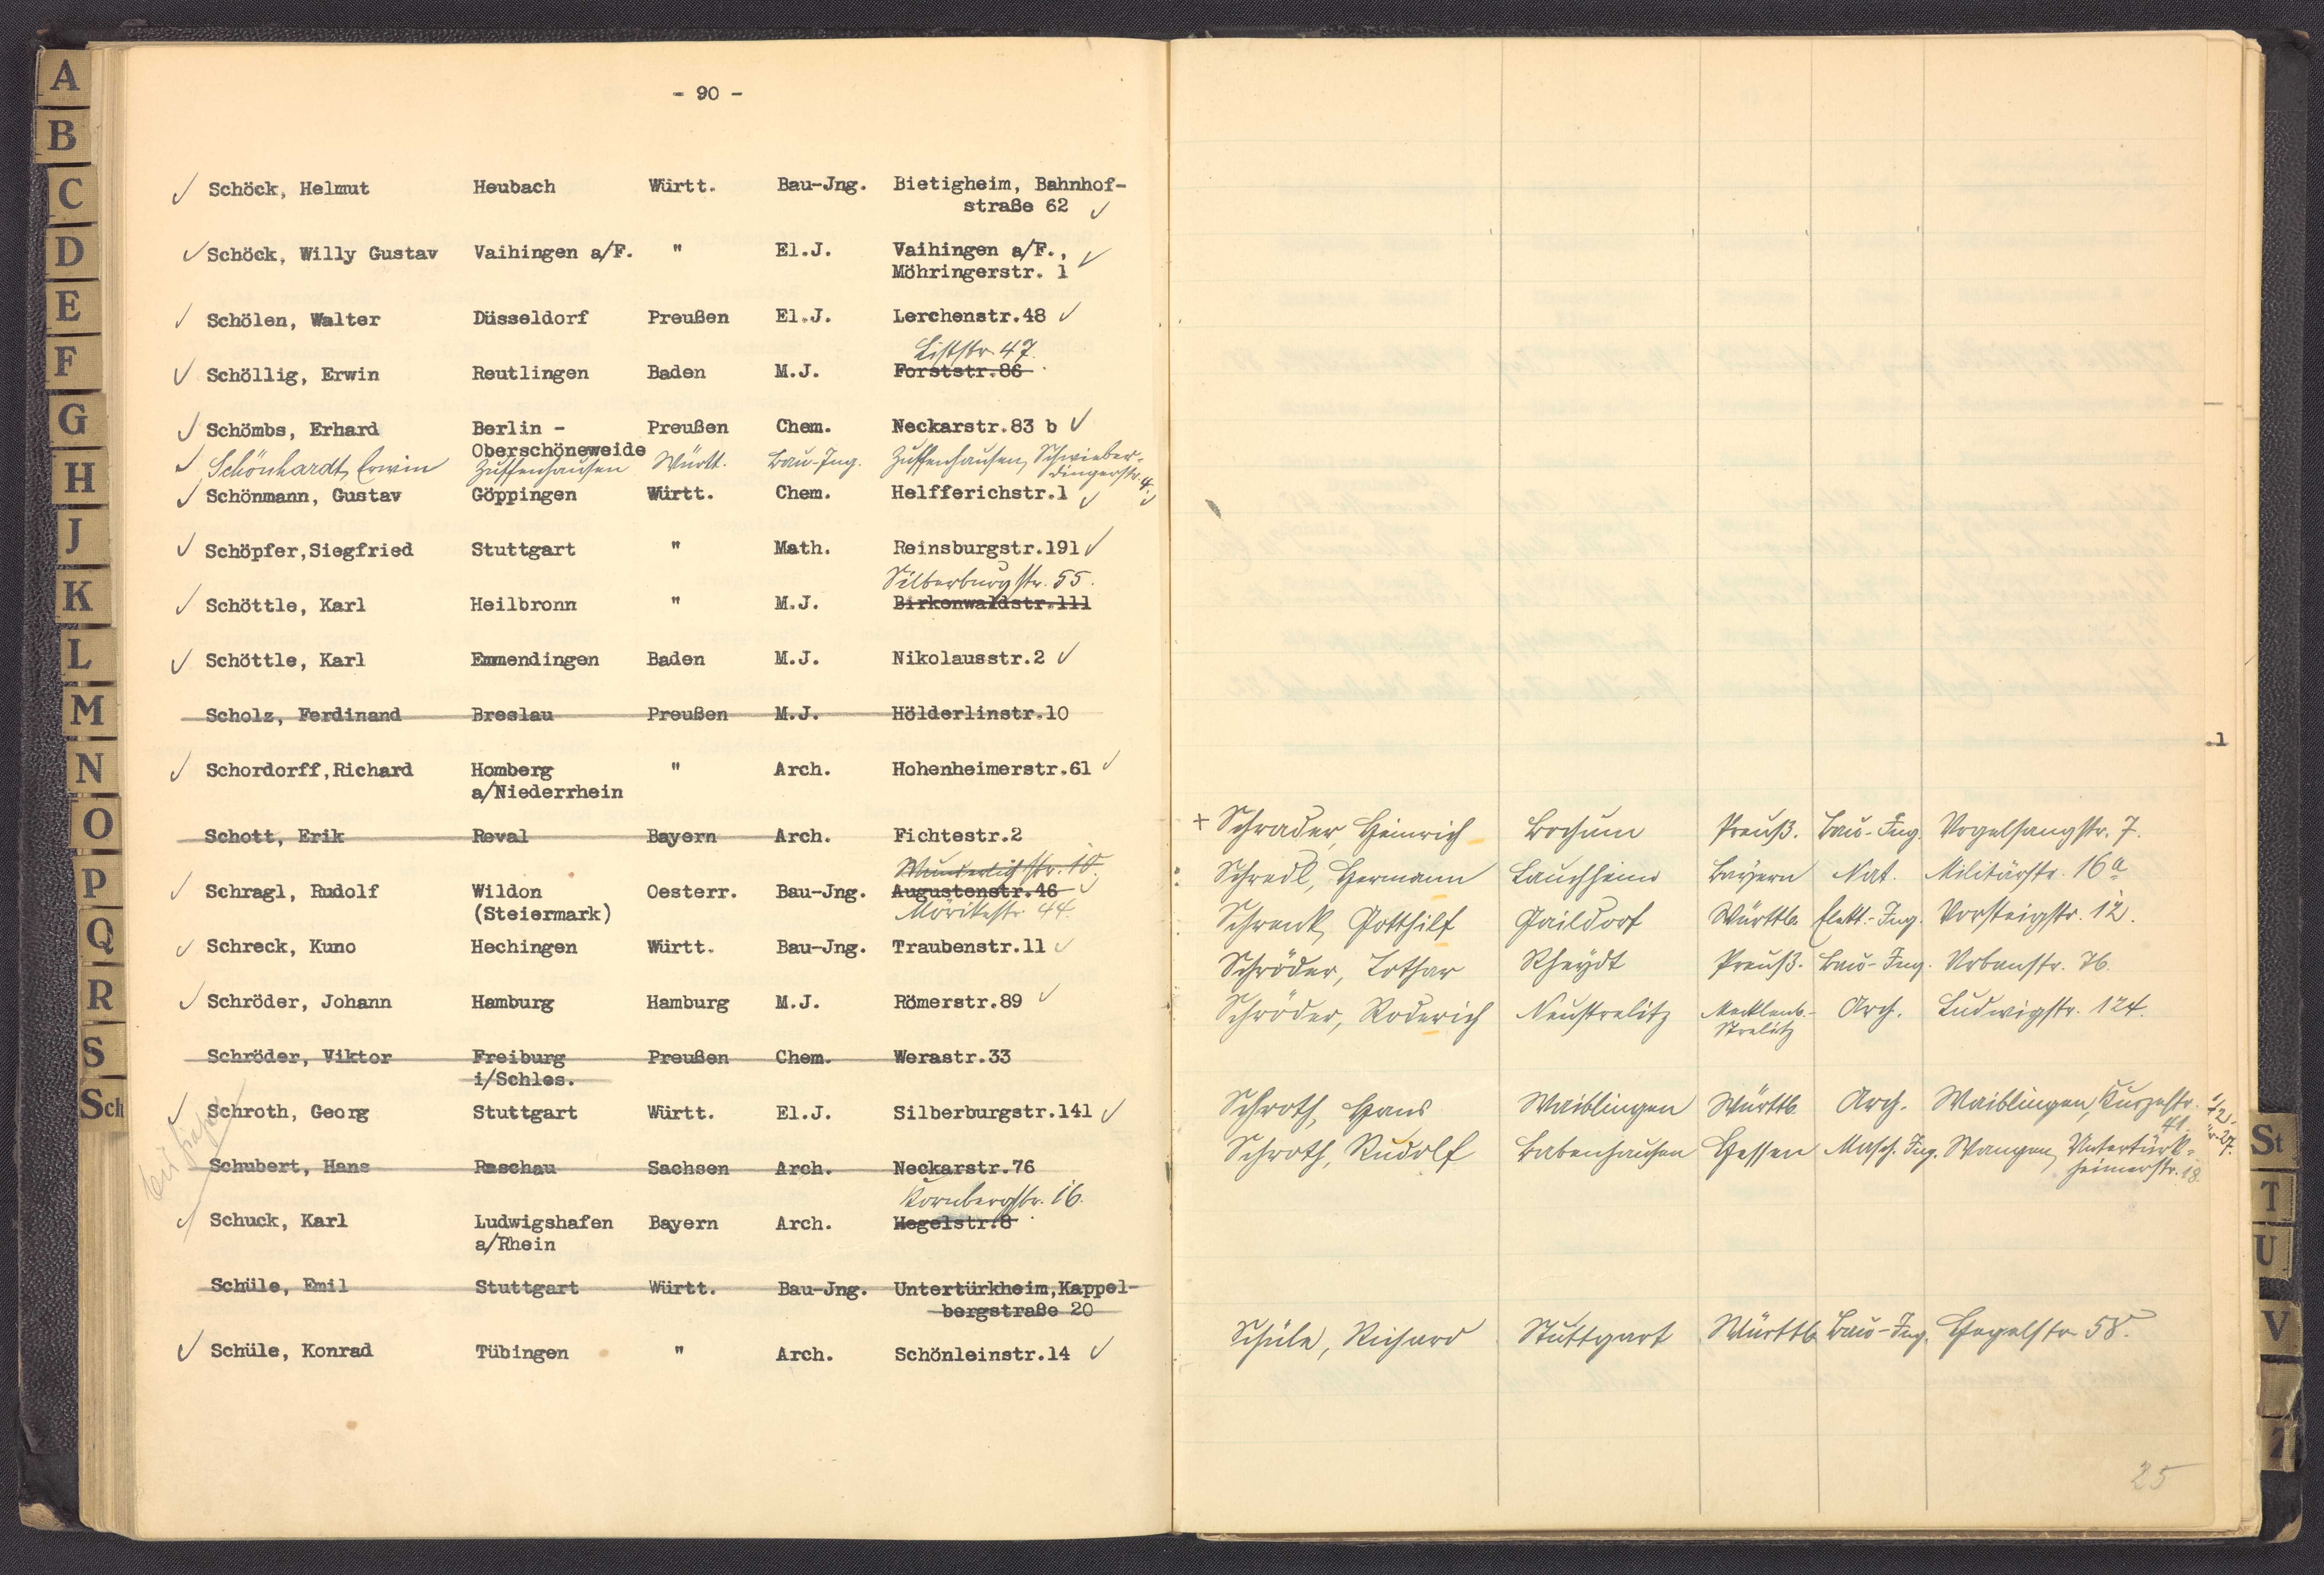 - 90 -
Schöck, Helmut Heubach Württ. Bau-Jng. Bietigheim, Bahnhof-
straße 62
Schöck, Willy Gustav Vaihingen a/F. " El.J. Vaihingen a/F.,
Möhringerstr. 1
Schölen, Walter Düsseldorf Preußen El.J. Lerchenstr.48
Liststr. 47.
Schöllig, Erwin Reutlingen Baden M.J. Forststr.86
Schömbs, Erhard Berlin - Preußen Chem. Neckarstr.83 b
Oberschöneweide
Schönhardt, Erwin Zuffenhausen Württ. Bau-Ing. Zuffenhausen, Schwieber-
dingerstr. 4.
Schönmann, Gustav Göppingen Württ. Chem. Helfferichstr.1
Schöpfer,Siegfried Stuttgart " Math. Reinsburgstr.191
Silberburgstr. 55.
Schöttle, Karl Heilbronn " M.J. Birkenwaldstr.111
Schöttle, Karl Emmendingen Baden M.J. Nikolausstr.2
Scholz, Ferdinand Breslau Preußen M.J. Hölderlinstr.10
Schordorff,Richard Homberg " Arch. Hohenheimerstr.61
a/Niederrhein
Schott, Erik Reval Bayern Arch. Fichtestr.2
Wunderlichstr. 10.
Schragl, Rudolf Wildon Oesterr. Bau-Jng. Augustenstr.46
(Steiermark) Mörikestr. 44.
Schreck, Kuno Hechingen Württ. Bau-Jng. Traubenstr.11
Schröder, Johann Hamburg Hamburg M.J. Römerstr.89
Schröder, Viktor Freiburg Preußen Chem. Werastr.33
i/Schles.
Schroth, Georg Stuttgart Württ. El.J. Silberburgstr.141
Schubert, Hans Raschau Sachsen Arch. Neckarstr.76
Kornbergstr. 16.
Schuck, Karl Ludwigshafen Bayern Arch. Hegelstr.8
a/Rhein
Schüle, Emil Stuttgart Württ. Bau-Jng. Untertürkheim,Kappel-
bergstraße 20
Schüle, Konrad Tübingen " Arch. Schönleinstr.14
+ Schrader, Heinrich Bochum Preuß. Bau-Ing. Vogelsangstr. 7.
Schredl, Hermann Lauchheim Bayern Nat. Militärstr. 16a
Schrenk, Gotthilf Gaildorf Württb. Elekt.-Ing. Vorsteigstr. 12.
Schröder, Lothar Rheydt Preuß. Bau-Ing. Urbanstr. 76.
Schröder, Roderich Neustrelitz Mecklenb.- Arch. Ludwigstr. 124.
Strelitz
Schroth, Hans Waiblingen Württb. Arch. Waiblingen, Kurzestr.
41.
Schroth, Rudolf Babenhausen Hessen Masch. Ing. Wangen, Untertürk-
heimerstr. 18.
Schüle, Richard Stuttgart Württb. Bau-Ing. Hegelstr. 58.
25
A
B
C
D
E
F
G
H
J
K
L
M
N
O
P
Q
R
S
Sch
St
T
U
V
Z